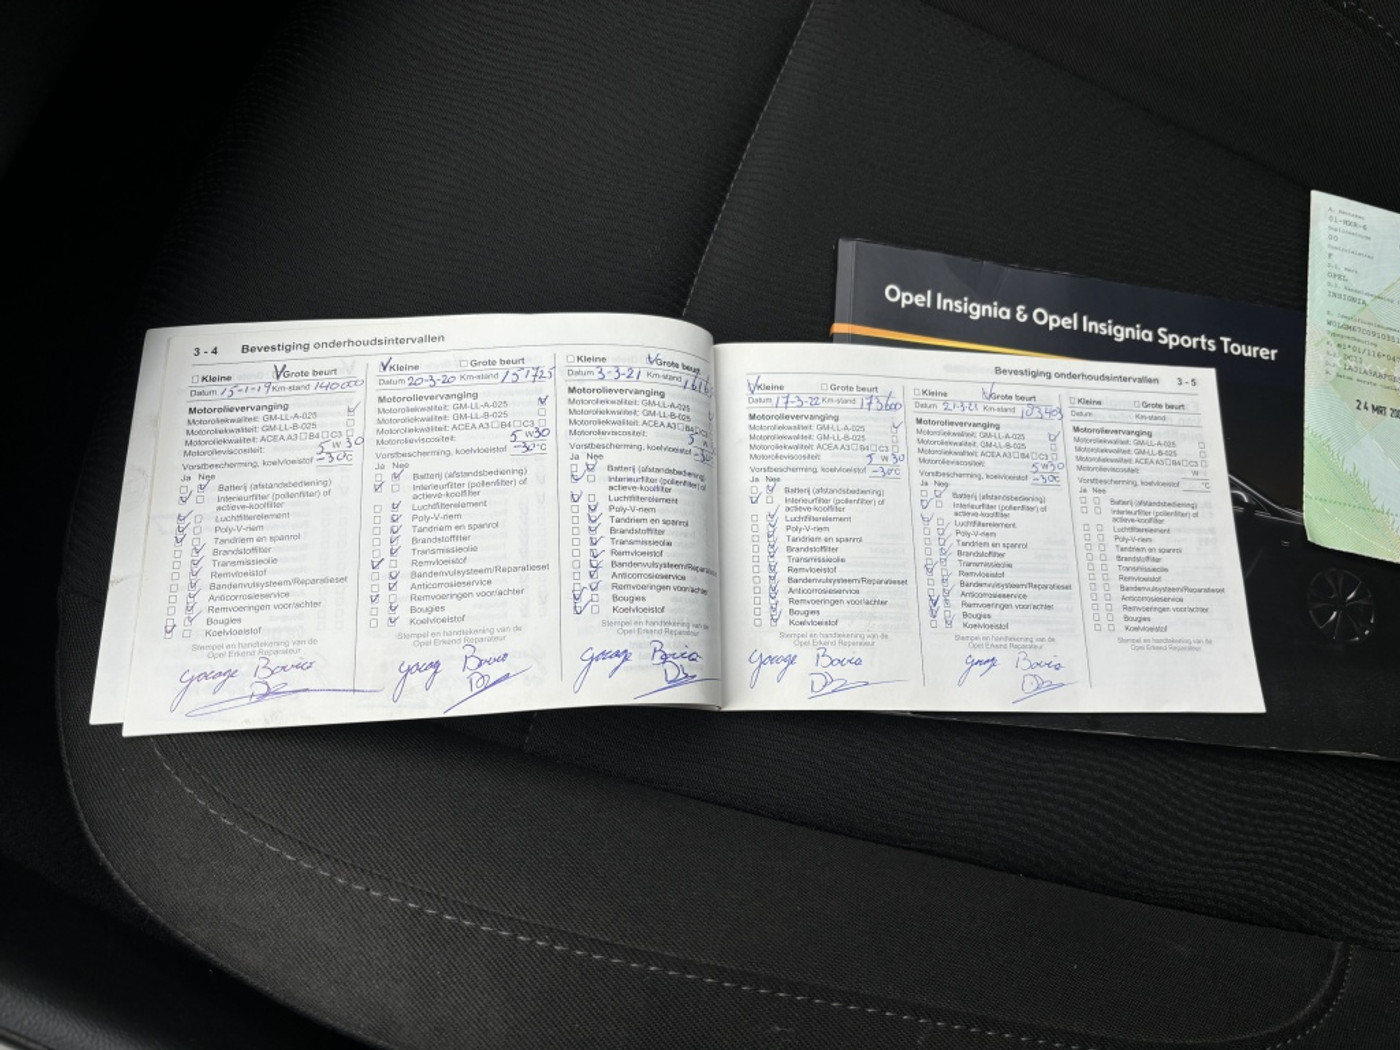 3 - 4 Bevestiging onderhoudsintervallen
Kleine Grote beurt
Datum 15-1-19 Km-stand 140000
Motorolievervanging
Motoroliekwaliteit: GM-LL-A-025
Motoroliekwaliteit: GM-LL-B-025
Motoroliekwaliteit: ACEA A3 B4 C3
Motorolieviscositeit: 5 W 30
Vorstbescherming, koelvloeistof -30°C
Ja Nee
Batterij (afstandsbediening)
Interieurfilter (pollenfilter) of
actieve-koolfilter
Luchtfilterelement
Poly-V-riem
Tandriem en spanrol
Brandstoffilter
Transmissieolie
Remvloeistof
Bandenvulsysteem/Reparatieset
Anticorrosieservice
Remvoeringen voor/achter
Bougies
Koelvloeistof
Stempel en handtekening van de
Opel Erkend Reparateur
Kleine Grote beurt
Datum 20-3-20 Km-stand 151725
Motorolievervanging
Motoroliekwaliteit: GM-LL-A-025
Motoroliekwaliteit: GM-LL-B-025
Motoroliekwaliteit: ACEA A3 B4 C3
Motorolieviscositeit: 5 W30
Vorstbescherming, koelvloeistof -30°C
Ja Nee
Batterij (afstandsbediening)
Interieurfilter (pollenfilter) of
actieve-koolfilter
Luchtfilterelement
Poly-V-riem
Tandriem en spanrol
Brandstoffilter
Transmissieolie
Remvloeistof
Bandenvulsysteem/Reparatieset
Anticorrosieservice
Remvoeringen voor/achter
Bougies
Koelvloeistof
Stempel en handtekening van de
Opel Erkend Reparateur
Kleine Grote beurt
Datum 3-3-21 Km-stand
Motorolievervanging
Motoroliekwaliteit: GM-LL-A-025
Motoroliekwaliteit: GM-LL-B-025
Motoroliekwaliteit: ACEA A3 B4 C3
Motorolieviscositeit: 5 W
Vorstbescherming, koelvloeistof
Ja Nee
Batterij (afstandsbediening)
Interieurfilter (pollenfilter) of
actieve-koolfilter
Luchtfilterelement
Poly-V-riem
Tandriem en spanrol
Brandstoffilter
Transmissieolie
Remvloeistof
Bandenvulsysteem/Reparatieset
Anticorrosieservice
Remvoeringen voor/achter
Bougies
Koelvloeistof
Stempel en handtekening van de
Opel Erkend Reparateur
Bevestiging onderhoudsintervallen 3 - 5
Kleine Grote beurt
Datum 17-3-22 Km-stand 173600
Motorolievervanging
Motoroliekwaliteit: GM-LL-A-025
Motoroliekwaliteit: GM-LL-B-025
Motoroliekwaliteit: ACEA A3 B4 C3
Motorolieviscositeit: 5 W30
Vorstbescherming, koelvloeistof -30°C
Ja Nee
Batterij (afstandsbediening)
Interieurfilter (pollenfilter) of
actieve-koolfilter
Luchtfilterelement
Poly-V-riem
Tandriem en spanrol
Brandstoffilter
Transmissieolie
Remvloeistof
Bandenvulsysteem/Reparatieset
Anticorrosieservice
Remvoeringen voor/achter
Bougies
Koelvloeistof
Stempel en handtekening van de
Opel Erkend Reparateur
Kleine Grote beurt
Datum Km-stand 183403
Motorolievervanging
Motoroliekwaliteit: GM-LL-A-025
Motoroliekwaliteit: GM-LL-B-025
Motoroliekwaliteit: ACEA A3 B4 C3
Motorolieviscositeit: 5 W30
Vorstbescherming, koelvloeistof -30°C
Ja Nee
Batterij (afstandsbediening)
Interieurfilter (pollenfilter) of
actieve-koolfilter
Luchtfilterelement
Poly-V-riem
Tandriem en spanrol
Brandstoffilter
Transmissieolie
Remvloeistof
Bandenvulsysteem/Reparatieset
Anticorrosieservice
Remvoeringen voor/achter
Bougies
Koelvloeistof
Stempel en handtekening van de
Opel Erkend Reparateur
Kleine Grote beurt
Datum Km-stand
Motorolievervanging
Motoroliekwaliteit: GM-LL-A-025
Motoroliekwaliteit: GM-LL-B-025
Motoroliekwaliteit: ACEA A3 B4 C3
Motorolieviscositeit: W
Vorstbescherming, koelvloeistof °C
Ja Nee
Batterij (afstandsbediening)
Interieurfilter (pollenfilter) of
actieve-koolfilter
Luchtfilterelement
Poly-V-riem
Tandriem en spanrol
Brandstoffilter
Transmissieolie
Remvloeistof
Bandenvulsysteem/Reparatieset
Anticorrosieservice
Remvoeringen voor/achter
Bougies
Koelvloeistof
Stempel en handtekening van de
Opel Erkend Reparateur
Opel Insignia & Opel Insignia Sports Tourer
00
F
OPEL
INSIGNIA
24 MRT